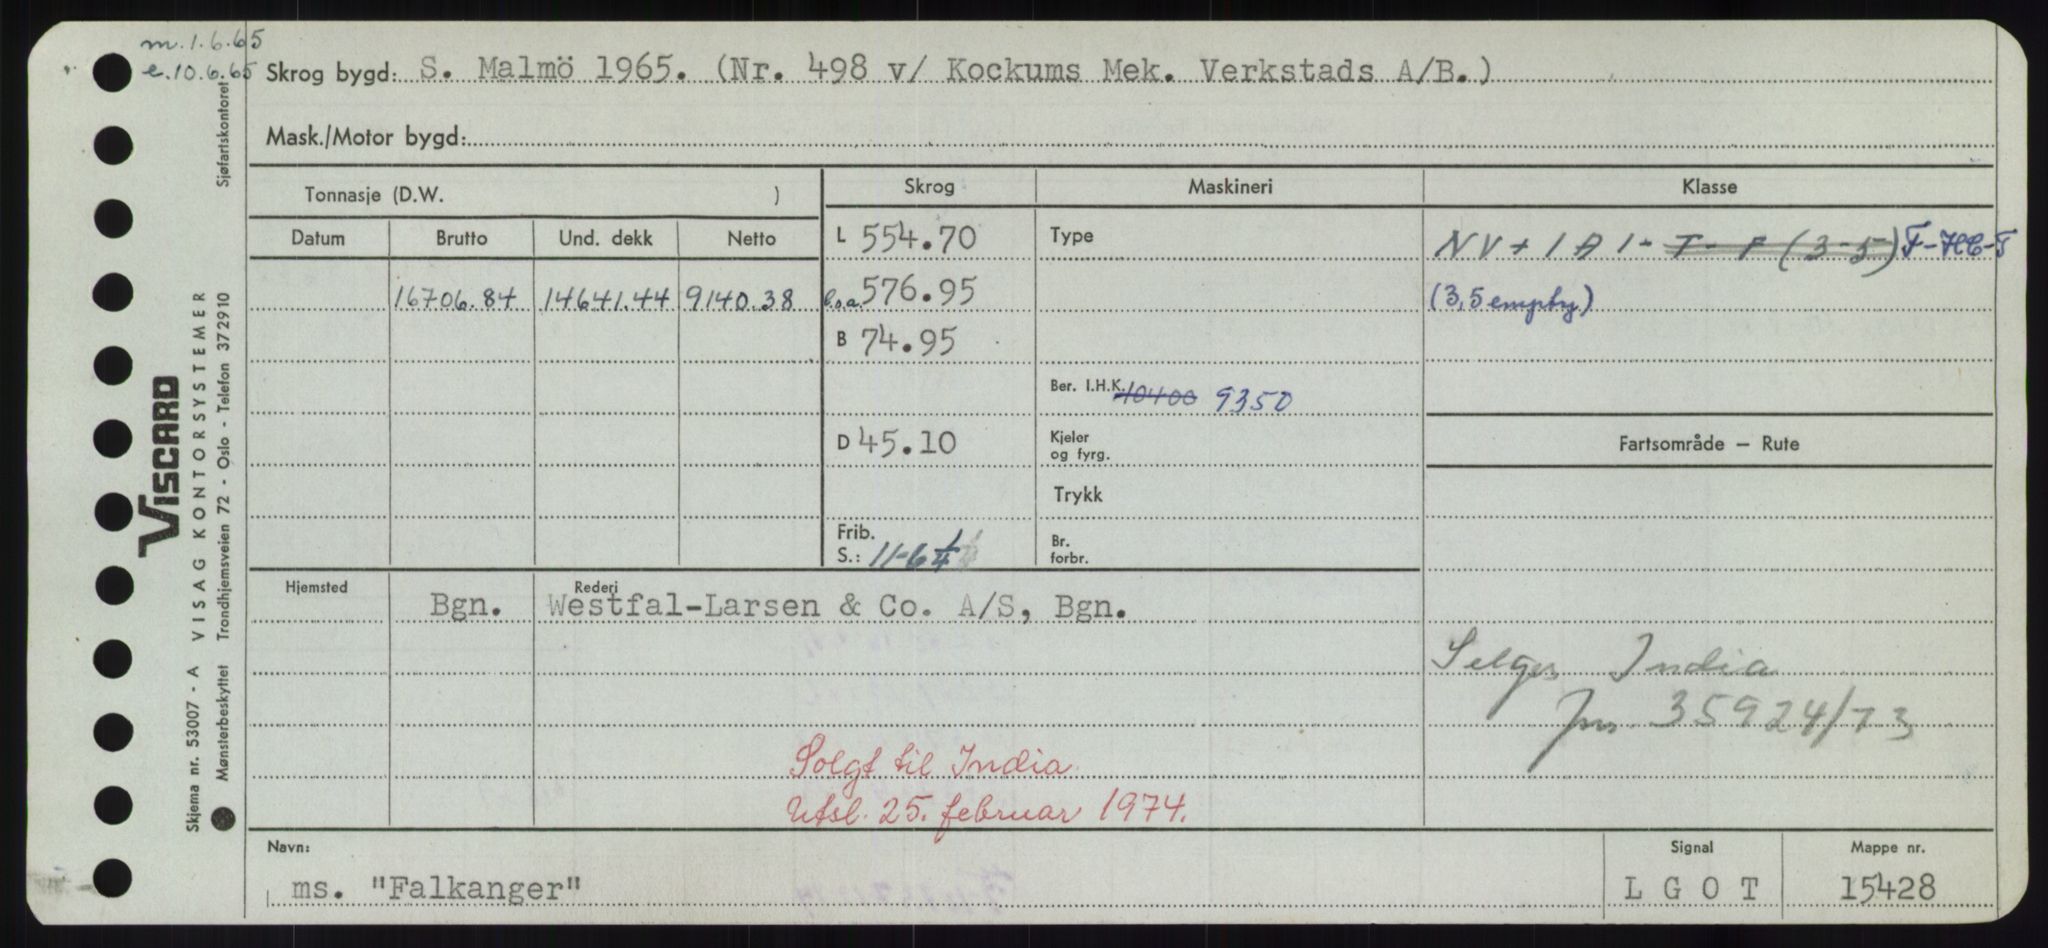 m. 1.6.65
e. 10.6.65
Skrog bygd: S. Malmö 1965. (Nr. 498 v/ Kockums Mek. Verkstads A/B.)
Mask./Motor bygd:
Tonnasje (D.W. )
Skrog
Maskineri
Klasse
Datum
Brutto
Und. dekk
Netto
16706.84
14641.44
9140.38
L 554.70
l.o.a. 576.95
B 74.95
D 45.10
Frib.
S.: 11-6¼
Type
Ber. I.H.K. 10400 9350
Kjeler
og fyrg.
Trykk
Br.
forbr.
NV + 1A1- T - F (3-5) F-HC-T
(3,5 empty)
Fartsområde — Rute
Hjemsted
Bgn.
Rederi
Westfal-Larsen & Co. A/S, Bgn.
Selges India
Jnr. 35924/73
Solgt til India
Utsl. 25. februar 1974.
Navn:
ms. "Falkanger"
Signal
L G O T
Mappe nr.
15428
VISCARD
Skjema nr. 53007 - A VISAG KONTORSYSTEMER
Mønsterbeskyttet Trondhjemsveien 72 - Oslo - Telefon 372910
Sjøfartskontoret